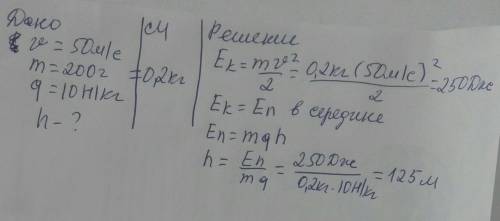 Дано
v = 50м/с
m = 200г
g = 10Н/кг
h - ?
СИ
= 0,2кг
Решение
Eк = mv²/2 = 0,2кг (50м/с)²/2 = 250Дж
Eк = Eп в середине
Eп = mgh
h = Eп/mg = 250Дж/0,2кг·10Н/кг = 125м